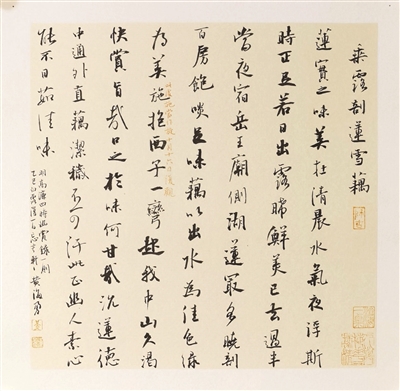 乘露剖蓮雪藕
蓮實之味美在清晨水氣夜浮斯
時正足若日出露晞鮮美已去過半
當夜宿岳王廟側湖蓮最多曉剖
百房飽啖足味藕以出水為佳色綠
為美旋抱西子一彎起我中山久渴
快賞旨哉口之於味何甘哉況蓮德
中通外直藕潔穢不可汙此正幽人素心
能不日茹佳味
明高濂四時幽賞錄一則
乙巳